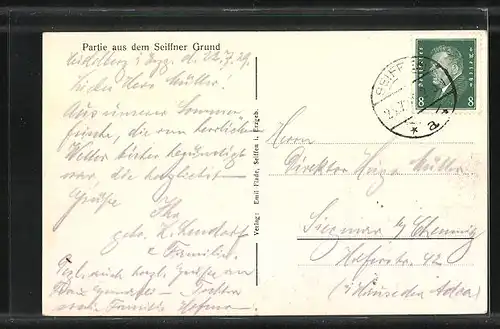 Partie aus dem Seiffner Grund
Heidelberg i. Erzg. d. 22.7.29.
Lieber Herr Müller!
Aus unserer Sommer
frische, die von herrlichem
Wetter bisher begünstigt
war, die herzlichsten
Grüße
Ihr
u. Familie.
auch herzl. Grüße an
Tochter
Familie
Verlag: Emil Flade, Seiffen i. Erzgeb.
8 8
SEIFF
* a *
Herrn
Direktor Hugo Müller
Siegmar b/ Chemnitz
Hoferstr. 42